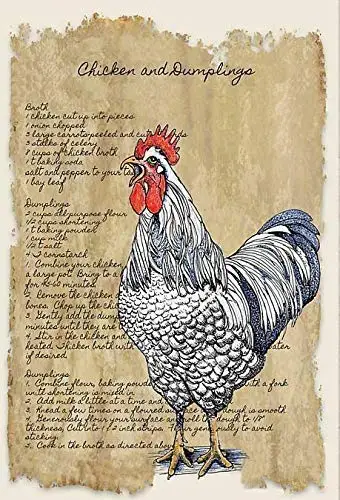 Chicken and Dumplings
Broth
1 chicken cut up into pieces
1 onion chopped
3 large carrots peeled and cut
3 stalks of celery
8 cups of chicken broth
1 t baking soda
salt and pepper to your
1 bay leaf
Dumplings
2 cups all purpose flour
1/2 cups shortening
1 t baking powder
1 cup milk
1/2 t salt
4 T cornstarch
1. Combine your chicken
a large pot. Bring to a
for 45-60 minutes.
2. Remove the chicken
bones. Chop up the
3. Gently add the
minutes until they are
4. Stir in the cornstarch and
heated. Thicken broth with
if desired.
Dumplings
1. Combine flour, baking h a fork
until shortening is mixed in
2. Add milk a little at a
3. Knead a few times on a floured dough is smooth
4. Generously flour your dough to 1/8"
thickness. Cut into 1 1/2 inch strips. Flour generously to avoid
sticking.
5. Cook in the broth as directed above